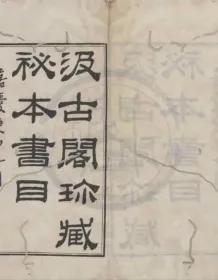 汲古閣珍藏
祕本書目